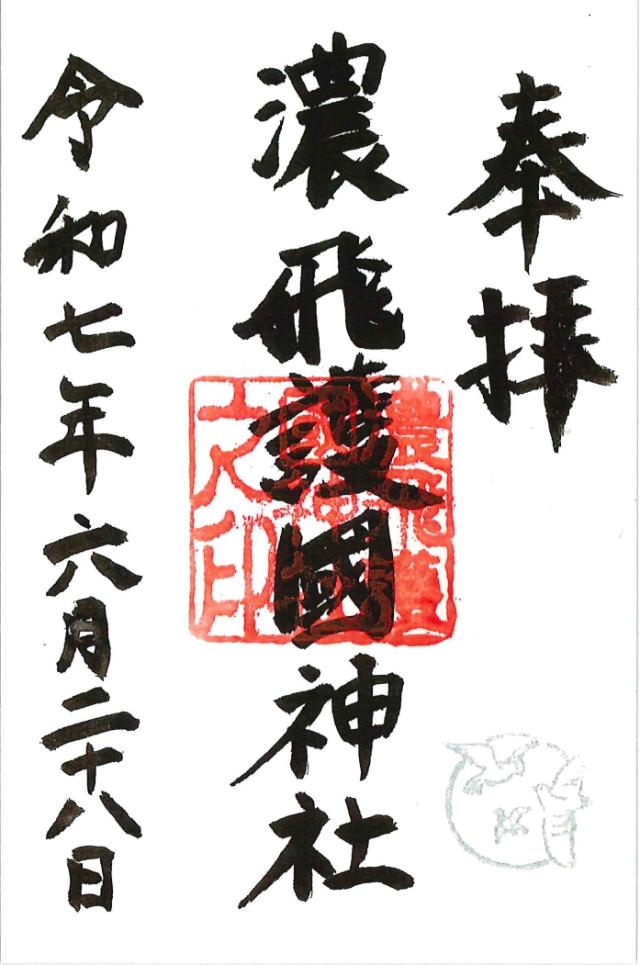 奉拝
濃飛護國神社
濃飛護
國神社
之印
令和七年六月二十八日